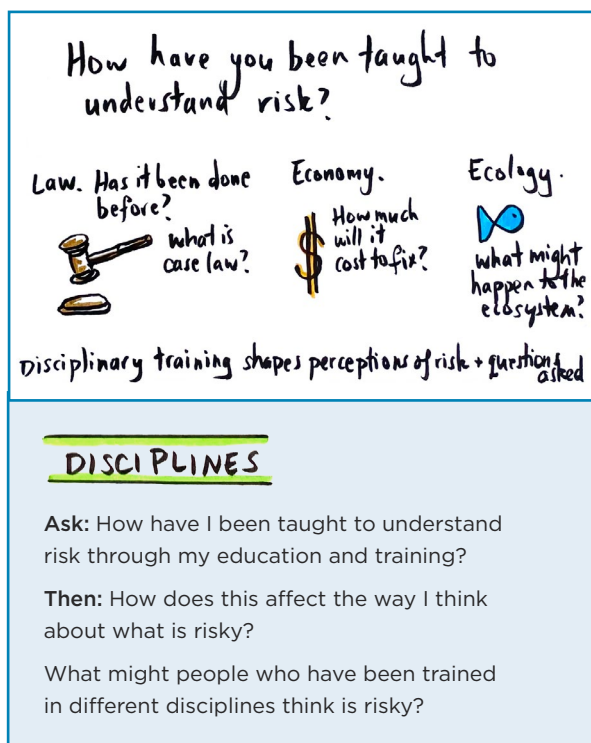 How have you been taught to
understand risk?
Law. Has it been done
before?
what is
case law?
Economy.
$
How much
will it
cost to fix?
Ecology.
what might
happen to the
ecosystem?
Disciplinary training shapes perceptions of risk + questions
asked
DISCIPLINES
Ask: How have I been taught to understand
risk through my education and training?
Then: How does this affect the way I think
about what is risky?
What might people who have been trained
in different disciplines think is risky?